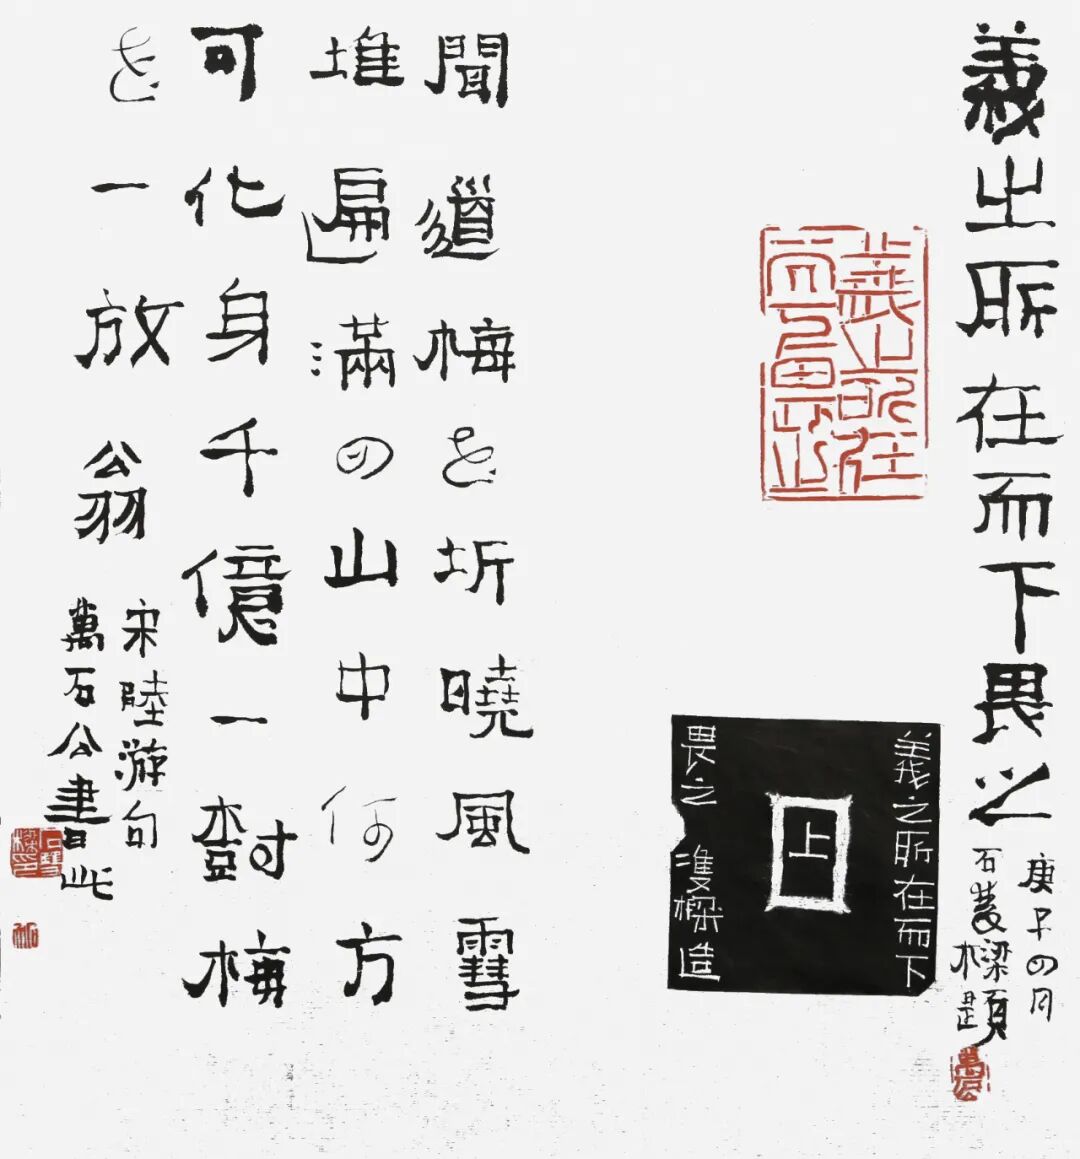 義之所在而下畏之
庚子四月
石 樑題
義之所在
而下畏之
義之所在而下
上
畏之 樑造
聞道梅花坼曉風雪
堆遍滿四山中何方
可化身千億一樹梅
花一放翁
宋陸游句
萬石公書此